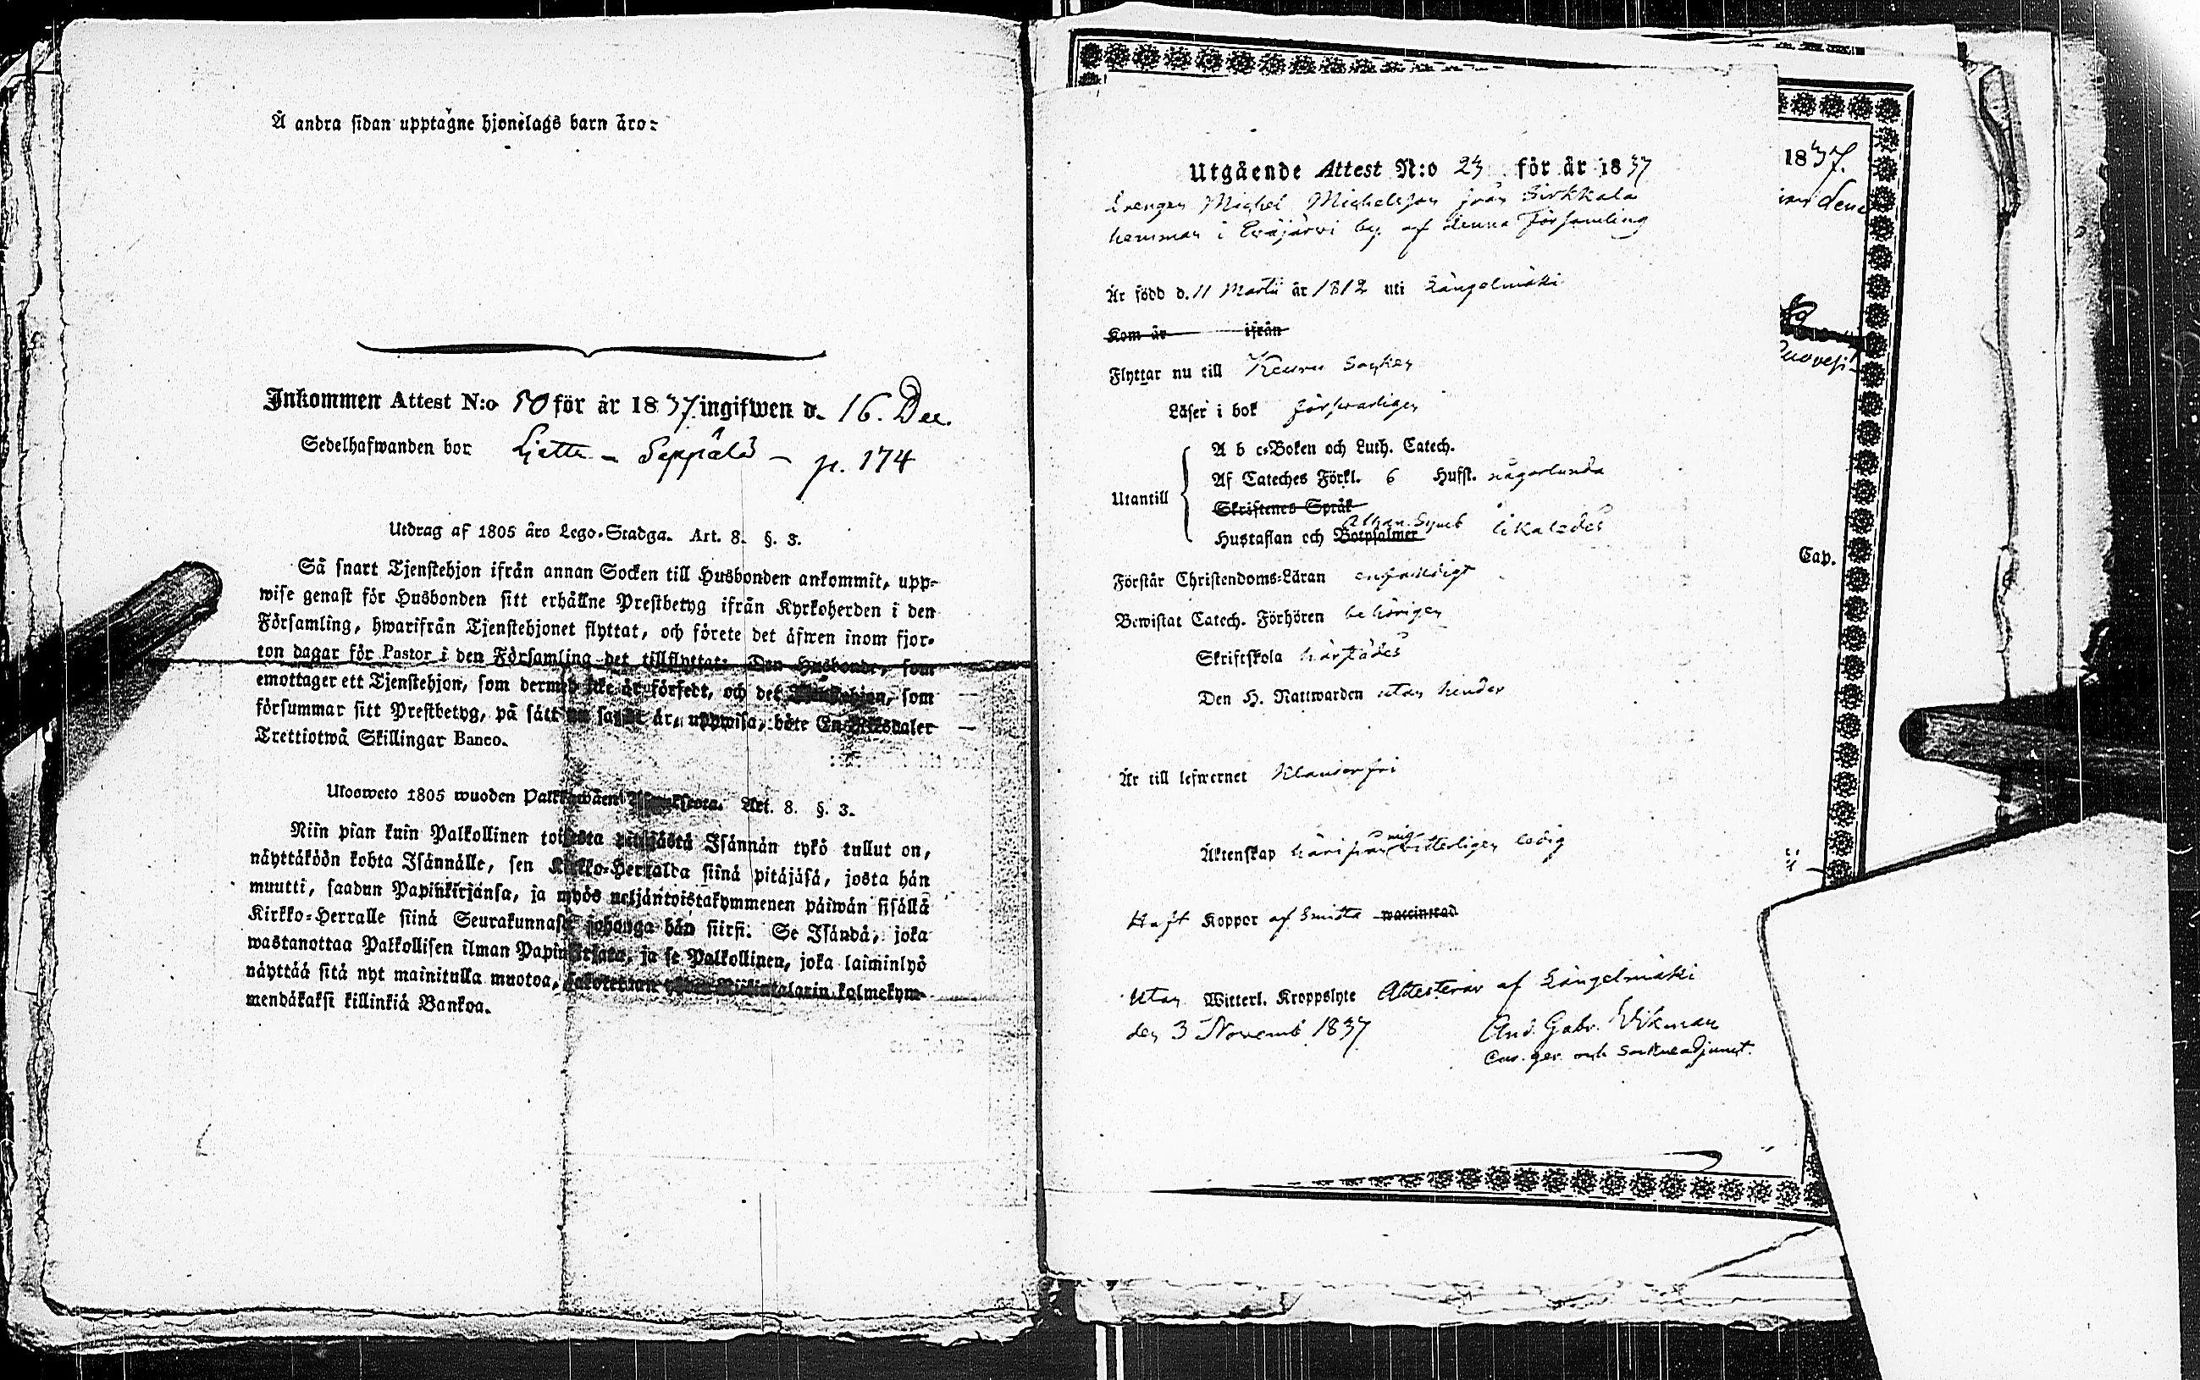 Å andra sidan upptagne hjonelags barn äro:
Inkommen Attest N:o 50 för år 1837 ingifwen d. 16. Dec.
Sedelhafwanden bor Ljette - Seppälä - p. 174
Utdrag af 1805 års Lego-Stadga. Art. 8. §. 3.
Så snart Tjenstehjon ifrån annan Socken till Husbonden ankommit, upp-
wise genast för Husbonden sitt erhållne Prestbetyg ifrån Kyrkoherden i den
Församling, hwarifrån Tjenstehjonet flyttat, och förete det äfwen inom fjor-
ton dagar för Pastor i den Församling det tillflyttat: Den Husbonde, som
emottager ett Tjenstehjon, som dermed icke är försedt, och det Tjenstehjon, som
försummar sitt Prestbetyg, på sätt nu sagdt är, uppwisa, böte En Riksdaler
Trettiotwå Skillingar Banco.
Ulosweto 1805 wuoden Palkkawäen Asetuksesta. Art. 8. §. 3.
Niin pian kuin Palkollinen toisesta pitäjästä Isännän tykö tullut on,
näyttäköön kohta Isännälle, sen Kirkko-Herralda siinä pitäjäsä, josta hän
muutti, saadun Papinkirjansa, ja myös neljäntoistakymmenen päiwän sisällä
Kirkko-Herralle siinä Seurakunnasa johonga hän siirsi. Se Isändä, joka
wastanottaa Palkollisen ilman Papinkirjata, ja se Palkollinen, joka laiminlyö
näyttää sitä nyt mainitulla muotoa, sakotetaan yhden Riikintalarin kolmekym-
mendäkaksi killinkiä Bankoa.
Utgående Attest N:o 23 för år 1837
Drengen Michel Michelsson från Sirkkala
hemman i Eräjärvi by af denna Församling
Är född d. 11 Martii år 1812 uti Längelmäki
Kom år ifrån
Flyttar nu till Keuru Socken
Läser i bok försvarligen
Utantill
A b c-Boken och Luth. Catech.
Af Cateches Förkl. 6 Hufst. någorlunda
Skriftenes Språk
Athan. Symb
Hustaflan och Botpsalmer likaledes
Förstår Christendoms-Läran enfaldigt
Bewistat Catech. Förhören behörigen
Skriftskola härstädes
Den H. Nattwarden utan hinder
Är till lefwernet klanderfri
mig
Äktenskap härifrån vitterligen ledig
Haft Koppor af Smitta waccinerad
Utan Witterl. Kroppslyte Attesterar af Längelmäki
den 3 Novemb 1837 And. Gabr. Wikman
Cur. ger. och Sockneadjunct.
1837.
Cap.